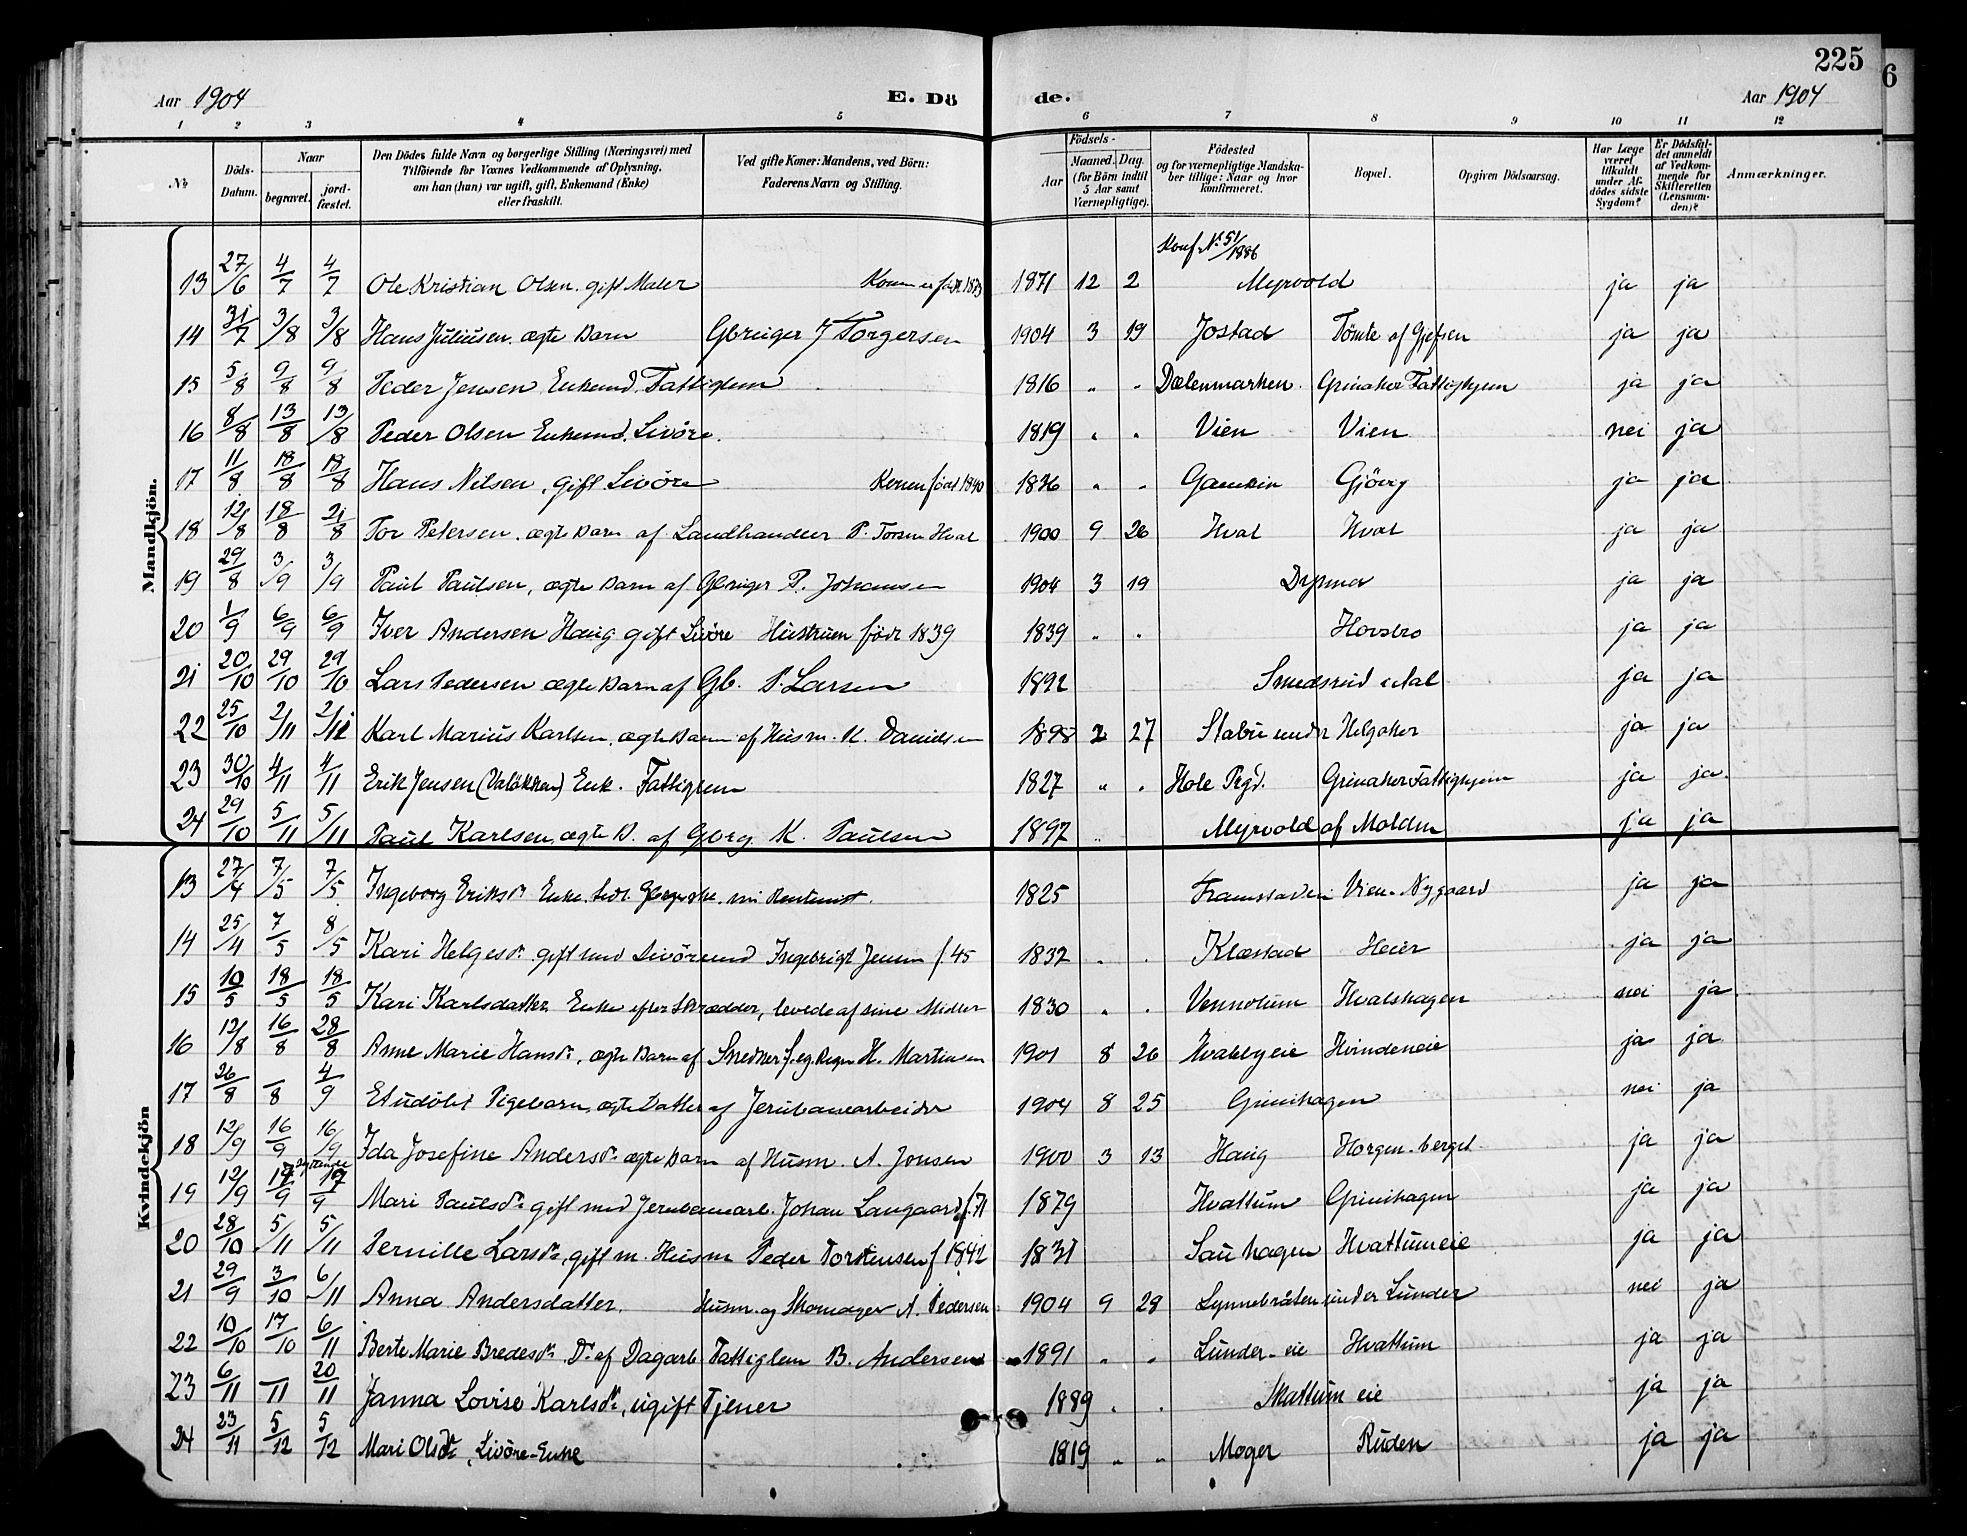 225
6
Aar 1904 E. Dö de. Aar 1904
1 2 3 4 5 6 7 8 9 10 11 12
No Döds-Datum. Naar begravet. jordfæstet. Den Dödes fulde Navn og borgerlige Stilling (Næringsvei) med Tilföiende for Voxnes Vedkommende af Oplysning, om han (hun) var ugift, gift, Enkemand (Enke) eller fraskilt. Ved gifte Koner: Mandens, ved Börn: Faderens Navn og Stilling. Födsels- Aar Maaned. Dag. (for Börn indtil 5 Aar samt Værnepligtige). Födested og for værnepligtige Mandskaber tillige: Naar og hvor konfirmeret. Bopæl. Opgiven Dödsaarsag. Har Læge været tilkaldt under Afdödes sidste Sygdom? Er Dödsfaldet anmeldt af Vedkommende for Skifteretten (Lensmanden)? Anmærkninger.
Mandkjön.
Konf. No 51/1886
13 27/6 4/7 4/7 Ole Kristian Olsen. gift Maler Konen er född 1873 1871 12 2 Myrvold ja ja
14 31/7 3/8 3/8 Hans Juliusen. ægte Barn Gbruger J Torgersen 1904 3 19 Jostad Tömte af Gjefsen ja ja
15 5/8 9/8 9/8 Peder Jensen Enkemd. Fattiglem 1816 " " Dælenmarken Grinaker Fattighjem ja ja
16 8/8 13/8 13/8 Peder Olsen Enkemd. Livöre. 1819 " " Vien Vien nei ja
17 11/8 18/8 18/8 Hans Nilsen, gift Livöre Konen född 1840 1836 " " Gamkin Gjövig ja ja
18 12/8 18/8 21/8 Tor Petersen. ægte Barn af Landhandler P. Torsen Hval 1900 9 26 Hval Hval ja ja
19 29/8 3/9 3/9 Paul Paulsen, ægte Barn af Gbruger P. Johansen 1904 3 19 Dypmor ja ja
20 1/9 6/9 6/9 Iver Andersen Haug gift Livöre Hustruen född 1839 1839 " " Hovsbro ja ja
21 20/10 29/10 29/10 Lars Pedersen ægte Barn af Gb. P. Larsen 1892 Smedsrud i Aal ja ja
22 25/10 2/11 2/11 Karl Marius Karlsen, ægte Barn af Husm. K. Danielsen 1898 2 27 Stabu under Helgaker ja ja
23 30/10 4/11 4/11 Erik Jensen (Valökken) Enk. Fattiglem 1827 " " Hole Prgd. Grinaker Fattighjem ja ja.
24 29/10 5/11 5/11 Paul Karlsen, ægte B. af Gbrg. K. Paulsen 1897 " Myrvold af Molden ja ja
Kvindekjön
13 27/4 7/5 7/5 Ingeborg Eriksdr. Enke. nu Rentenist. 1825 Framstad Vien-Nygaard ja ja
14 25/4 7/5 8/5 Kari Helgesdr. gift med Livöremd Ingebrigt Jensen f. 45 1832 " " Klæstad Heier ja ja
15 10/5 18/5 18/5 Kari Karlsdatter Enke efter Skrædder, levede af sine Midler 1830 " " Vennolum Hvalshagen nei ja
16 12/8 16/8 28/8 Anne Marie Hansdr., ægte Barn af H. Martinsen 1901 8 26 Hvalebyeie Hvindeneie ja ja
17 26/8 –/8 4/9 Et udöbt Pigebarn, ægte Datter af Jernbanearbeider 1904 8 25 Grinihagen nei ja
18 12/9 16/9 16/9 Ida Josefine Andersdr. ægte Barn af Husm. A. Jonsen 1900 3 13 Haug Horgen-berget ja ja
19 12/9 17/9 17/9 Mari Paulsdr. gift med Jernbanearb. Johan Langaard f. 71 1879 Hvattum Grinihagen ja ja
20 28/10 5/11 5/11 Pernille Larsdr., gift m. Husm Peder Torstensen f 1842 1831 Sauhagen Hvattumeie ja ja
21 29/9 3/10 6/11 Anna Andersdatter. Husm. og Skomager A. Pedersen 1904 9 28 Lynnebråten under Lunder nei ja
22 10/10 17/10 6/11 Berte Marie Bredesdr. D. af Dagarb Fattiglem B. Andersen 1891 " " Lunder-eie Hvattum ja ja
23 6/11 –/11 20/11 Janna Lovise Karlsdr., ugift Tjener 1889 " " Skattum eie ja ja
24 23/11 5/12 5/12 Mari Olsdr., Livöre-Enke 1819 " " Moger Ruden ja ja